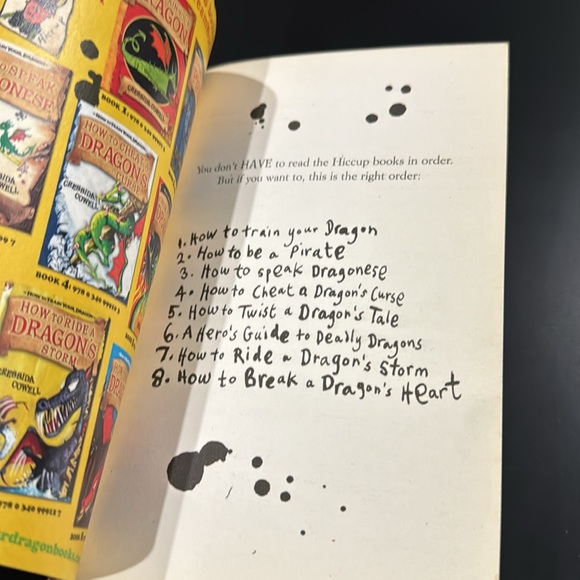 DRAGON
CRESSIDA COWELL
BOOK 2:
SPEAK
COWELL
HOW TO CHEAT A
DRAGON'S
CURSE
CRESSIDA
COWELL
BOOK 4: 978 0 340 99911
HOW TO RIDE A
DRAGON'S
STORM
CRESSIDA
COWELL
978 0 340 99912 7
rdragonbooks.
You don't HAVE to read the Hiccup books in order.
But if you want to, this is the right order:
1. How to train your Dragon
2. How to be a Pirate
3. How to speak Dragonese
4. How to Cheat a Dragon's Curse
5. How to Twist a Dragon's Tale
6. A Hero's Guide to Deadly Dragons
7. How to Ride a Dragon's Storm
8. How to Break a Dragon's Heart